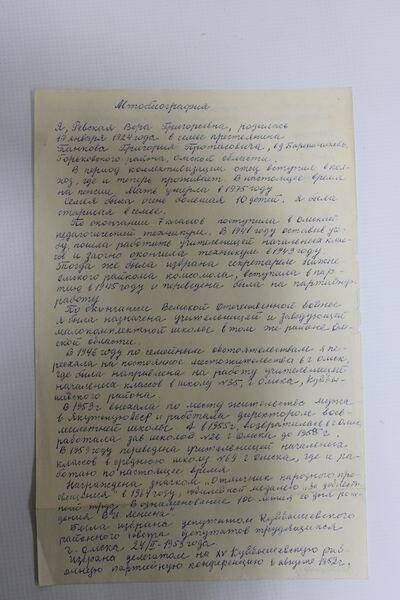 Автобиография
Я, Ревская Вера Григорьевна, родилась
19 января 1924 года в семье крестьянина
Панкова Григория Протасовича, в д.
Горьковского района, Омской области.
В период коллективизации отец вступил в кол-
хоз, где и теперь проживает. В настоящее время
на пенсии. Мать умерла в 1975 году.
Семья была очень большая 10 детей. Я была
старшая в семье.
По окончании 7 классов поступила в Омский
педагогический техникум. В 1941 году оставив уче-
бу, пошла работать учительницей начальных клас-
сов и заочно окончила техникум в 1943 году.
Тогда же была избрана секретарем
райкома комсомола, вступила в пар-
тию в 1945 году и переведена была на партийную
работу.
По окончании Великой Отечественной войны
я была назначена учительницей и заведующей
малокомплектной школой в том же районе Ом-
ской области.
В 1946 году по семейным обстоятельствам я пе-
реехала на постоянное местожительство в г. Омск,
где была направлена на работу учительницей
начальных классов в школу №35, г. Омска, Куйбы-
шевского района.
В 1953 г. выехала по месту жительства мужа
в и работала директором вось-
милетней школы. А в 1955 г. возвратилась в г. Омск,
работала зав. школой №26 г. Омска до
В 1959 году переведена учительницей начальных
классов в среднюю школу №69 г. Омска, где и ра-
ботаю по настоящее время.
Награждена значком "Отличник народного про-
свещения" в 1967 году, юбилейной медалью "За доблест-
ный труд. В ознаменование 100-летия со дня рож-
дения В.И. Ленина".
Была избрана депутатом Куйбышевского
районного совета депутатов трудящихся
г. Омска 1953 года.
Избрана делегатом на XV Куйбышевскую рай-
онную партийную конференцию в августе 1952 г.